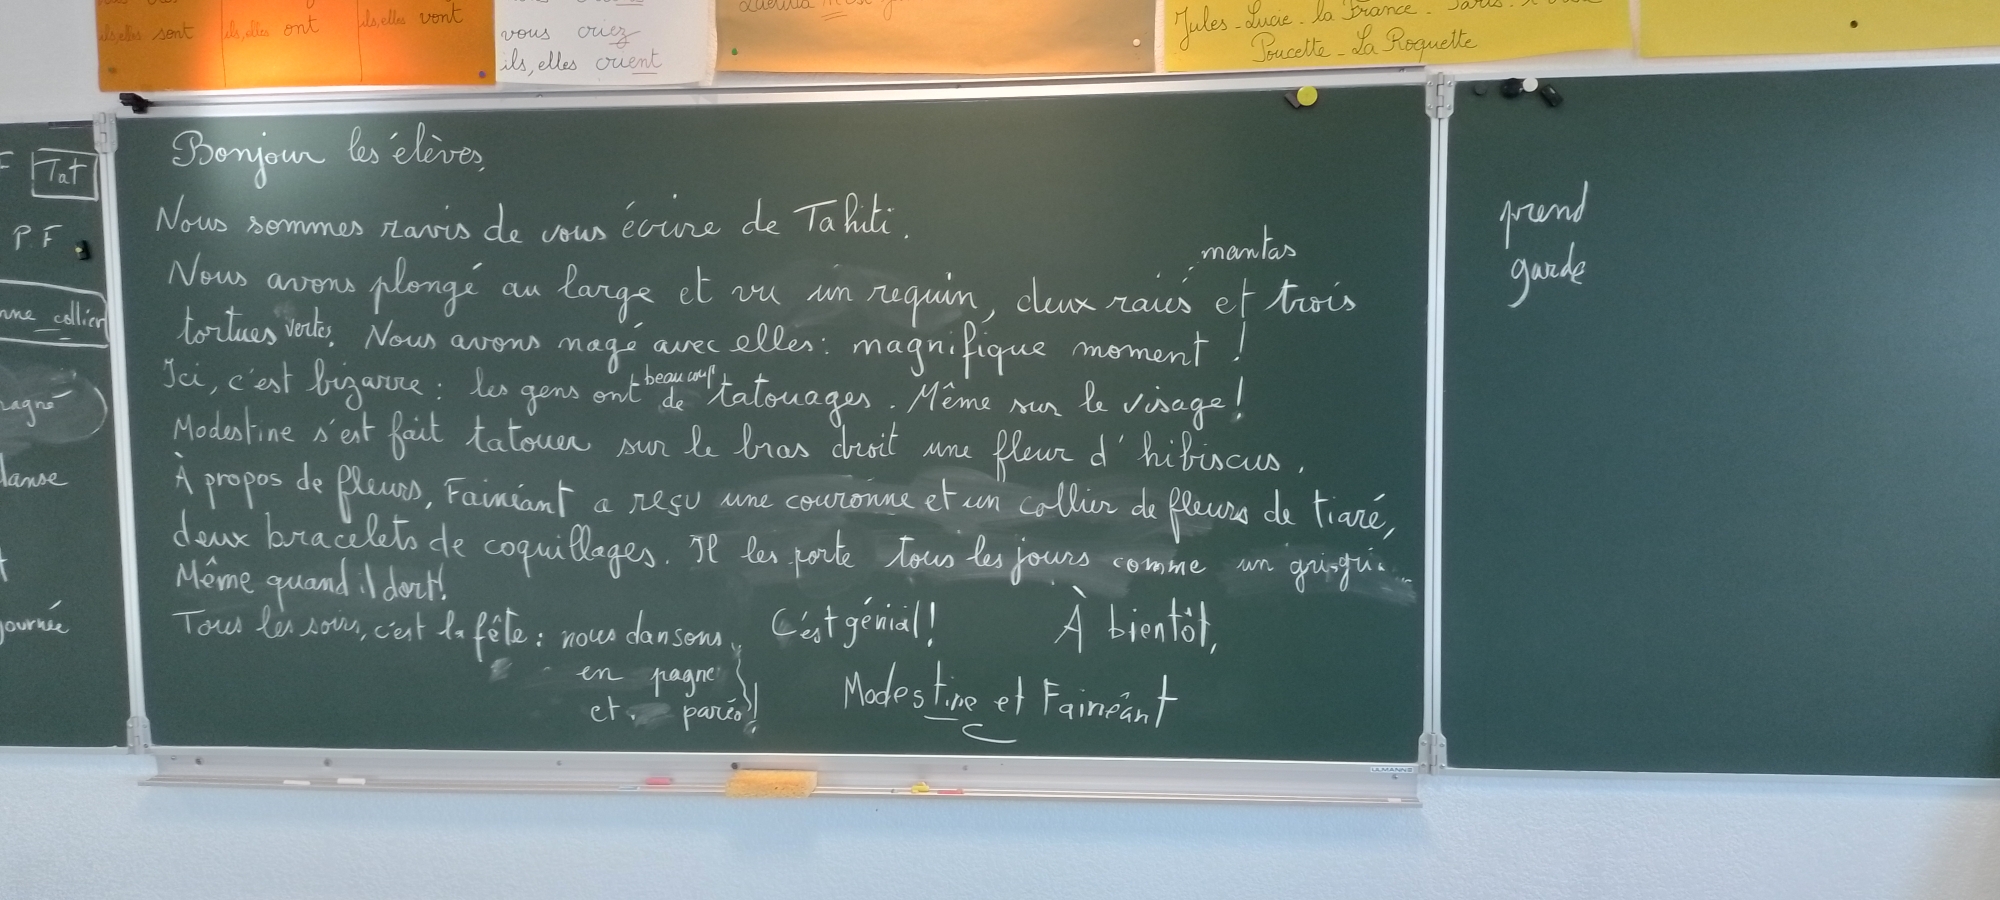 ils, elles sont
ils, elles ont
ils, elles vont
vous criez
ils, elles crient
Jules - Lucie - la France - Paris -
Poucette - La Roquette
Tat
P.F
collier
danse
journée
Bonjour les élèves,
Nous sommes ravis de vous écrire de Tahiti.
mantas
Nous avons plongé au large et vu un requin, deux raies et trois
tortues vertes. Nous avons nagé avec elles : magnifique moment !
Ici, c'est bizarre : les gens ont beaucoup de tatouages. Même sur le visage !
Modestine s'est fait tatouer sur le bras droit une fleur d'hibiscus.
À propos de fleurs, Fainéant a reçu une couronne et un collier de fleurs de tiaré,
deux bracelets de coquillages. Il les porte tous les jours comme un gri-gri...
Même quand il dort !
Tous les soirs, c'est la fête : nous dansons
en pagne
et paréo !
C'est génial !
À bientôt,
Modestine et Fainéant
prend
garde
ULMANN